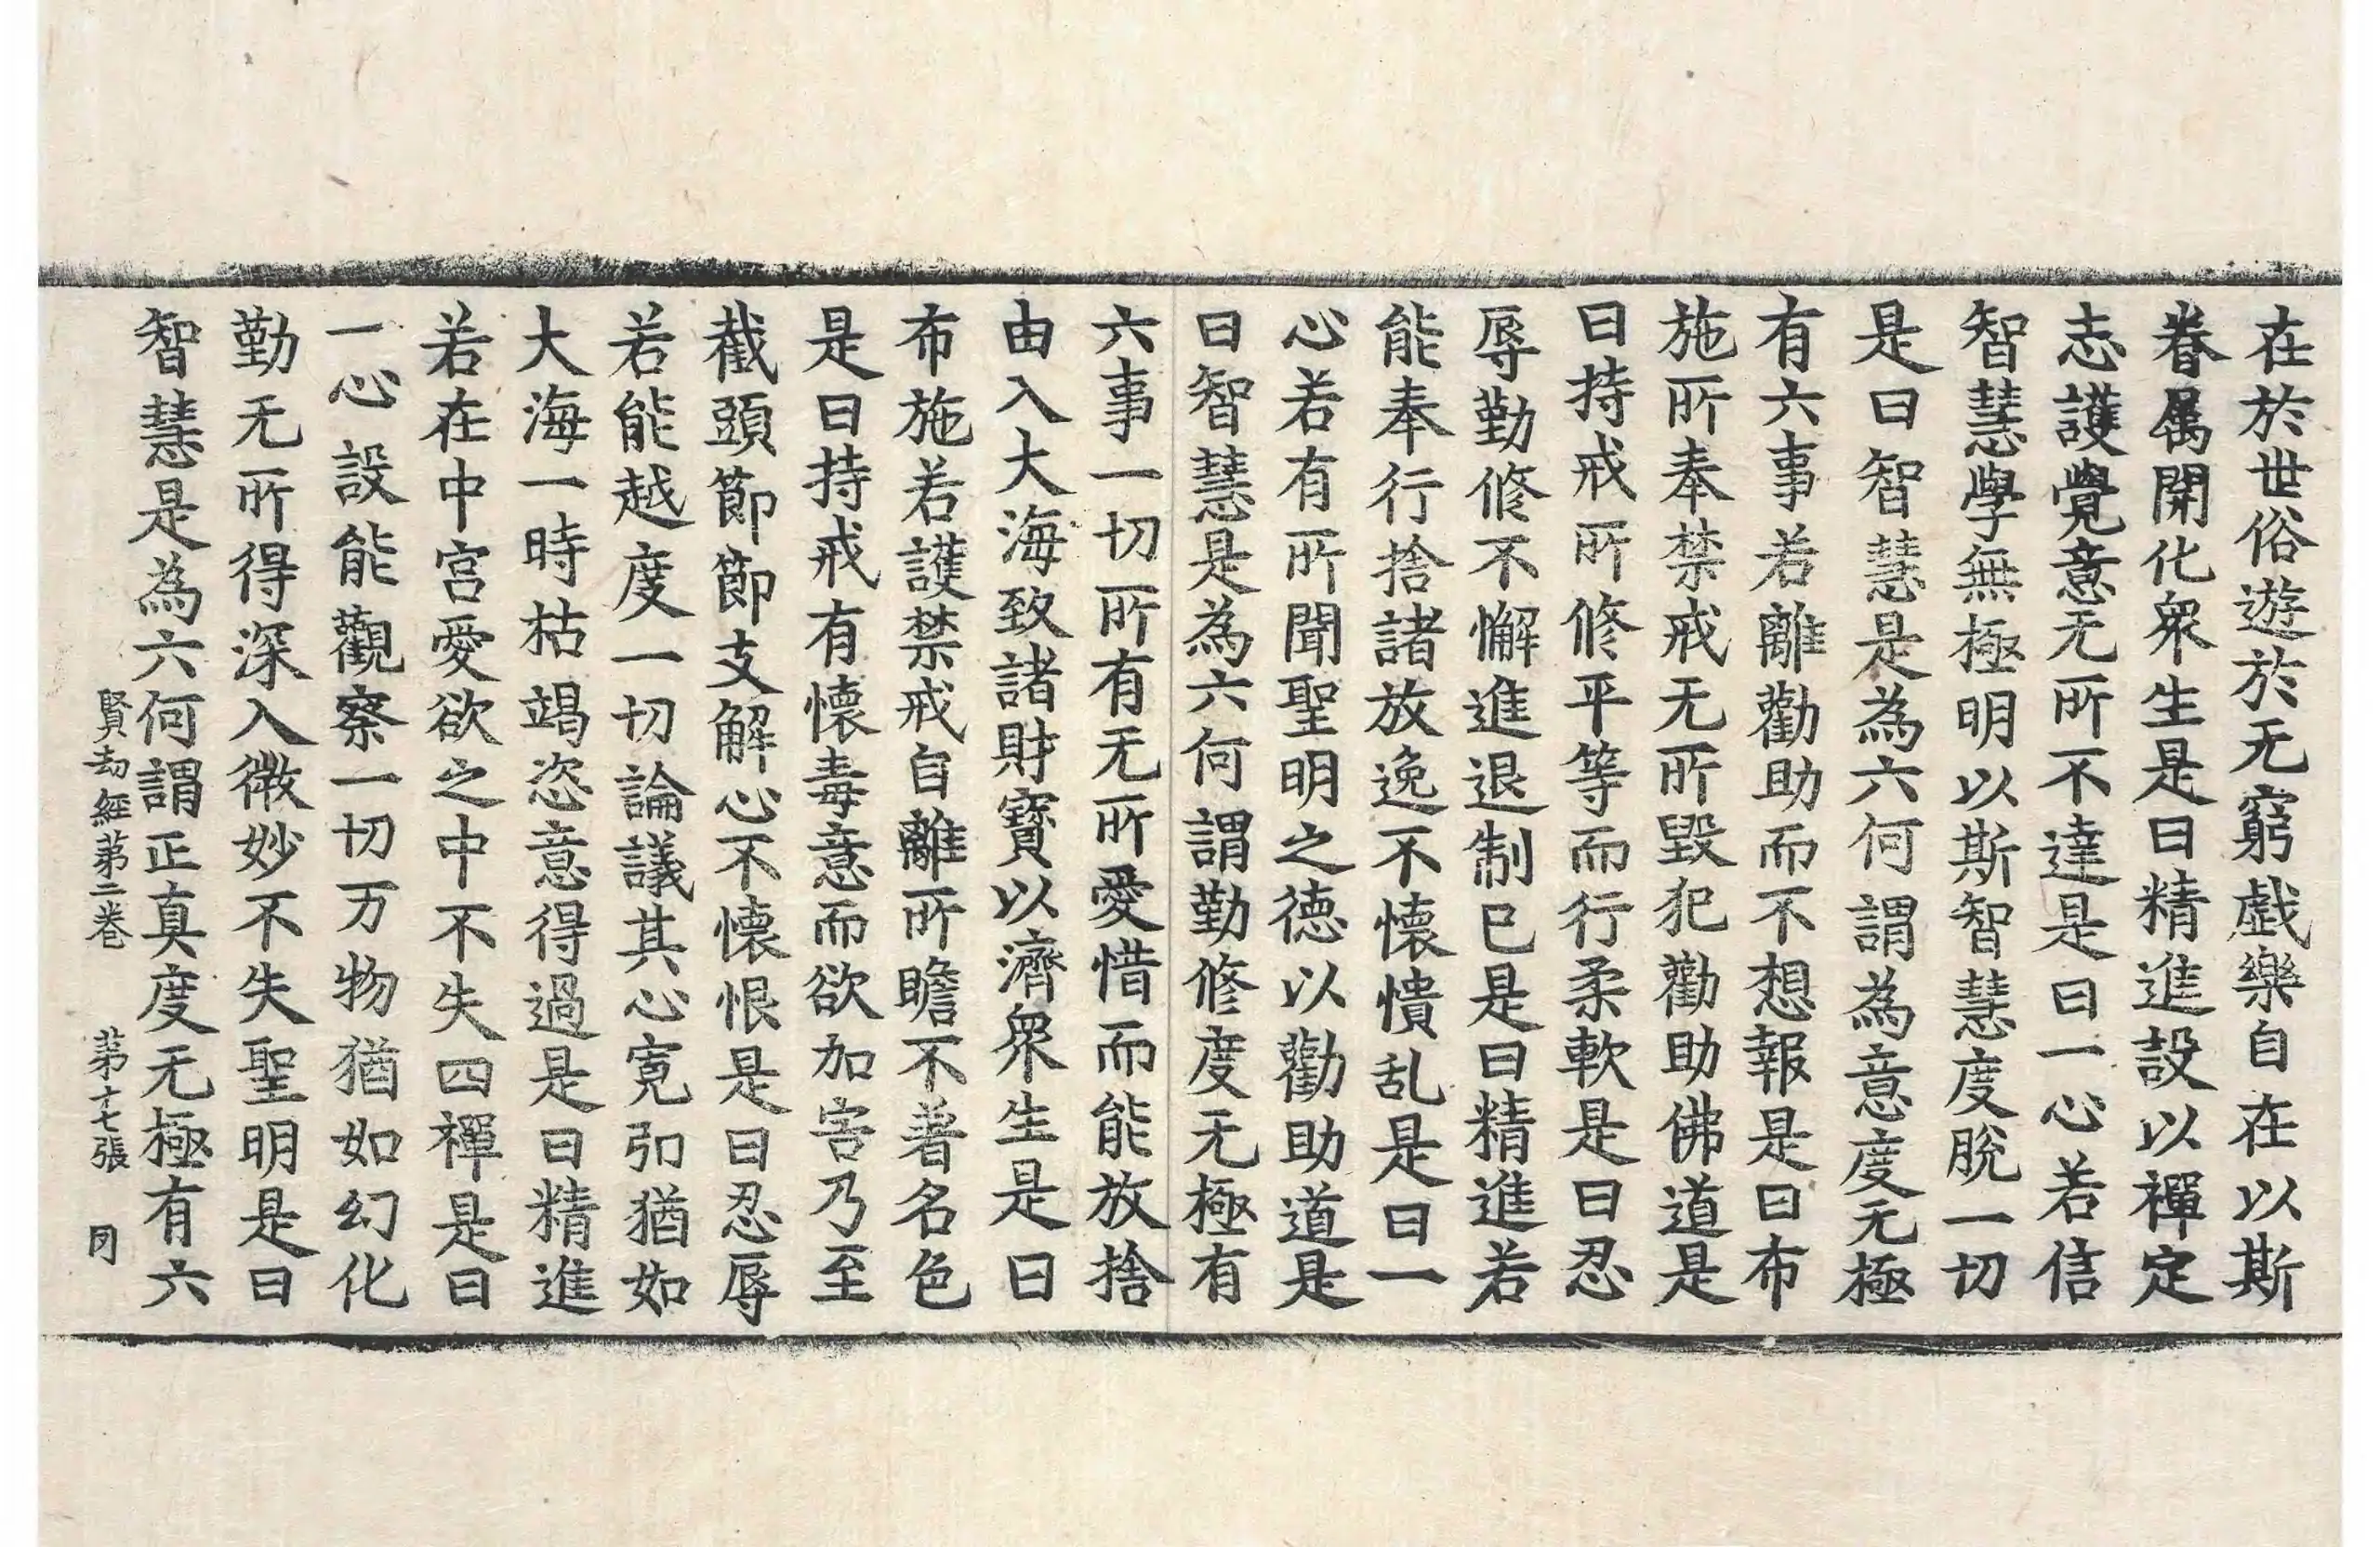 在於世俗遊於无窮戱樂自在以斯
眷属開化衆生是曰精進設以禪定
志護覺意无所不達是曰一心若信
智慧學無極明以斯智慧度脫一切
是曰智慧是為六何謂為意度无極
有六事若離勸助而不想報是曰布
施所奉禁戒无所毀犯勸助佛道是
曰持戒所修平等而行柔軟是曰忍
辱勤修不懈進退制已是曰精進若
能奉行捨諸放逸不懷憒乱是曰一
心若有所聞聖明之德以勸助道是
曰智慧是為六何謂勤修度无極有
六事一切所有无所愛惜而能放捨
由入大海致諸財寶以濟衆生是曰
布施若護禁戒自離所瞻不著名色
是曰持戒有懷毒意而欲加害乃至
截頭節節支解心不懷恨是曰忍辱
若能越度一切論議其心寬弘猶如
大海一時枯竭恣意得過是曰精進
若在中宮愛欲之中不失四禪是曰
一心設能觀察一切万物猶如幻化
勤无所得深入微妙不失聖明是曰
智慧是為六何謂正真度无極有六
賢劫經第二卷 第十七張